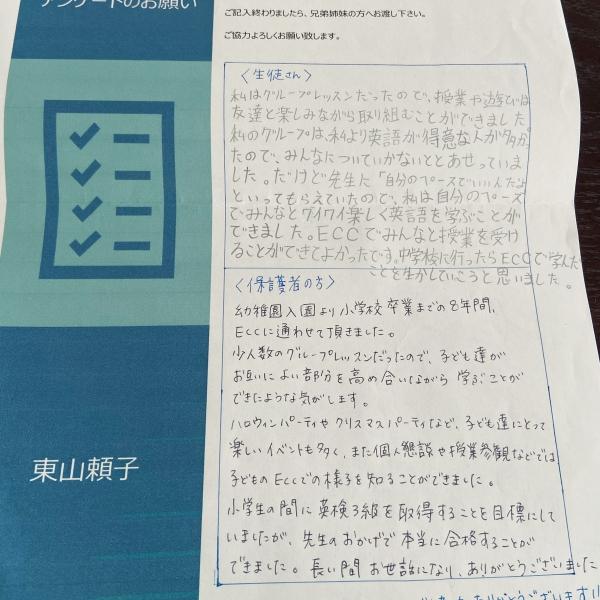 アンケートのお願い
ご記入終わりましたら、兄弟姉妹の方へお渡し下さい。
ご協力よろしくお願い致します。
〈生徒さん〉
私はグループレッスンだったので、授業や遊びでは
友達と楽しみながら取り組むことができました。
私のグループは、私より英語が得意な人が多かっ
たので、みんなについていかないととあせっていま
した。だけど先生に「自分のペースでいいんだよ
といってもらえていたので、私は自分のペース
でみんなとワイワイ楽しく英語を学ぶことが
できました。ECCでみんなと授業を受け
ることができてよかったです。中学校に行ったらECCで学んだ
ことを生かしていこうと思いました。
〈保護者の方〉
幼稚園入園より小学校卒業までの8年間、
ECCに通わせて頂きました。
少人数のグループレッスンだったので、子ども達が
お互いによい部分を高め合いながら学ぶことが
できたような気がします。
ハロウィンパーティやクリスマスパーティなど、子ども達にとって
楽しいイベントも多く、また個人懇談や授業参観などでは
子どものECCでの様子を知ることができました。
小学生の間に英検3級を取得することを目標にして
いましたが、先生のおかげで本当に合格することが
できました。長い間お世話になり、ありがとうございました
ありがとうございます!!
東山頼子